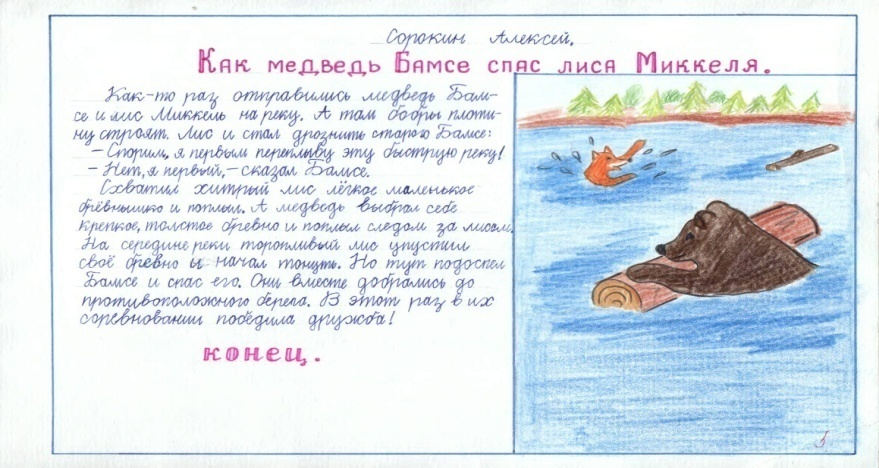 Сорокин Алексей.
Как медведь Бамсе спас лиса Миккеля.
Как-то раз отправились медведь Бам-
се и лис Миккель на реку. А там бобры плоти-
ну строят. Лис и стал дрознить старого Бамсе:
– Спорим, я первым переплыву эту быструю реку!
– Нет, я первый, – сказал Бамсе.
Схватил хитрый лис лёгкое маленькое
брёвнышко и поплыл. А медведь выбрал себе
крепкое, толстое бревно и поплыл следом за лисом.
На середине реки торопливый лис упустил
своё бревно и начал тонуть. Но тут подоспел
Бамсе и спас его. Они вместе добрались до
противоположного берега. В этот раз в их
соревновании победила дружба!
конец.
5